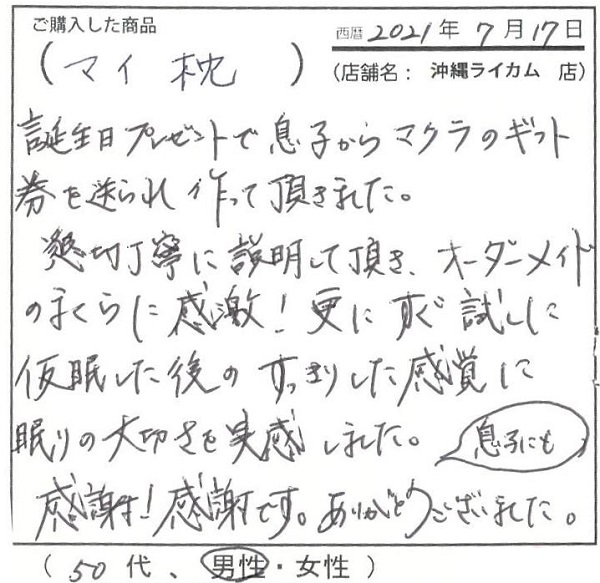 ご購入した商品
西暦 2021年 7月17日
(マイ枕)
(店舗名： 沖縄ライカム 店)
誕生日プレゼントで息子からマクラのギフト
券を送られ作って頂きました。
懇切丁寧に説明して頂き、オーダーメイド
のまくらに感激！更にすぐ試しに
仮眠した後のすっきりした感覚に
眠りの大切さを実感しました。
息子にも
感謝！感謝です。ありがとうございました。
(50代、男性・女性)